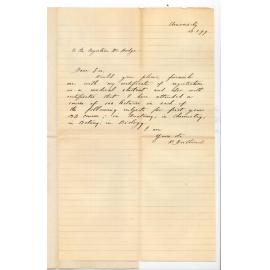 University
To the Registrar
Dear Sir
Would you please furnish
me with my certificate of registration
as a medical student and also with
certificates that I have attended a
course of 100 lectures in each of
the following subjects for first year
in Anatomy, in Chemistry,
in Botany, in Biology
I am
Yours